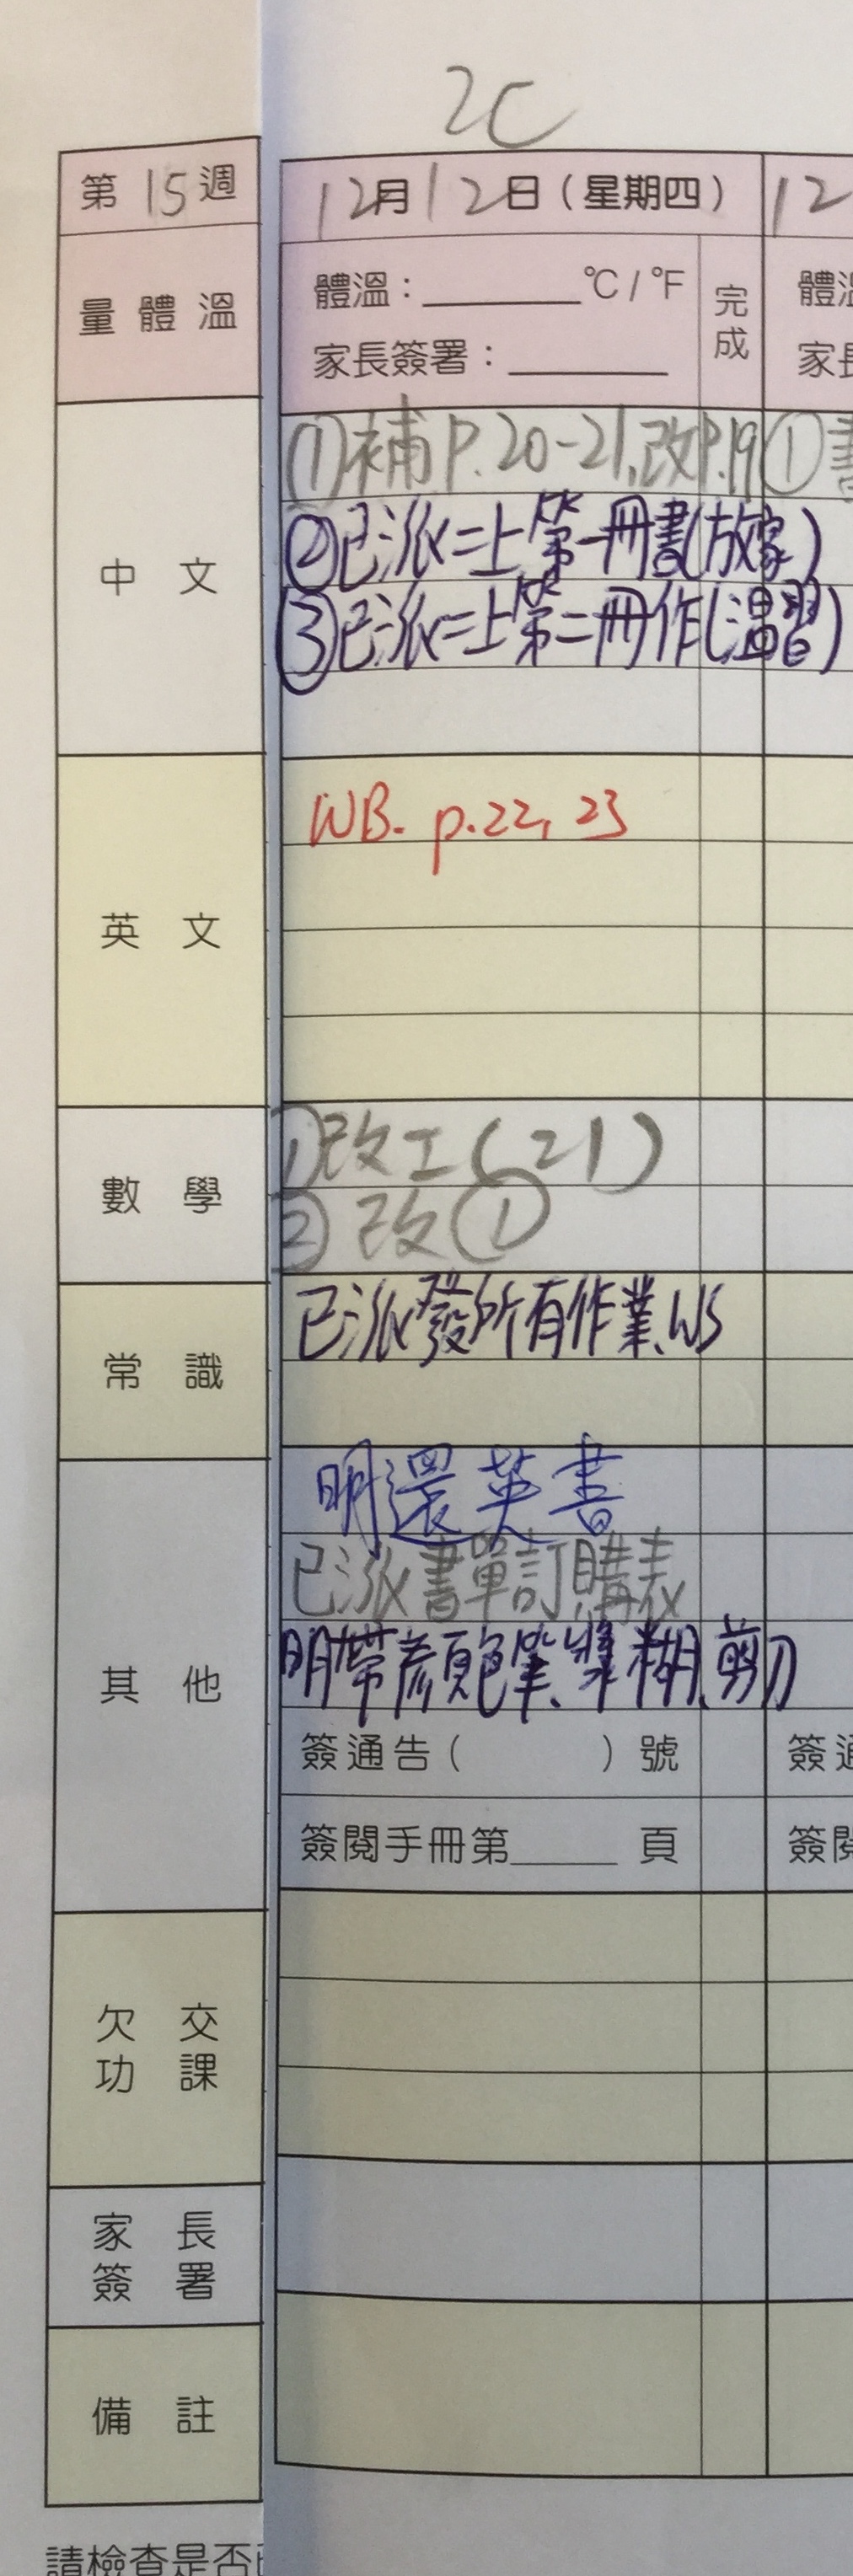 2C
第15週
12月12日（星期四）
12
量體溫
體溫：______°C / °F
家長簽署：______
完成
體溫
家長
中文
①補P.20-21,改P.19
①書
②已派二上第一冊書(放家)
③已派二上第二冊作(溫習)
英文
WB. p.22, 23
數學
①改工(21)
②改①
常識
已派發所有作業、WS
其他
明還英書
已派書單訂購表
明帶顏色筆、漿糊、剪刀
簽通告（ ）號
簽通
簽閱手冊第_____頁
簽閱
欠交功課
家長簽署
備註
請檢查是否已